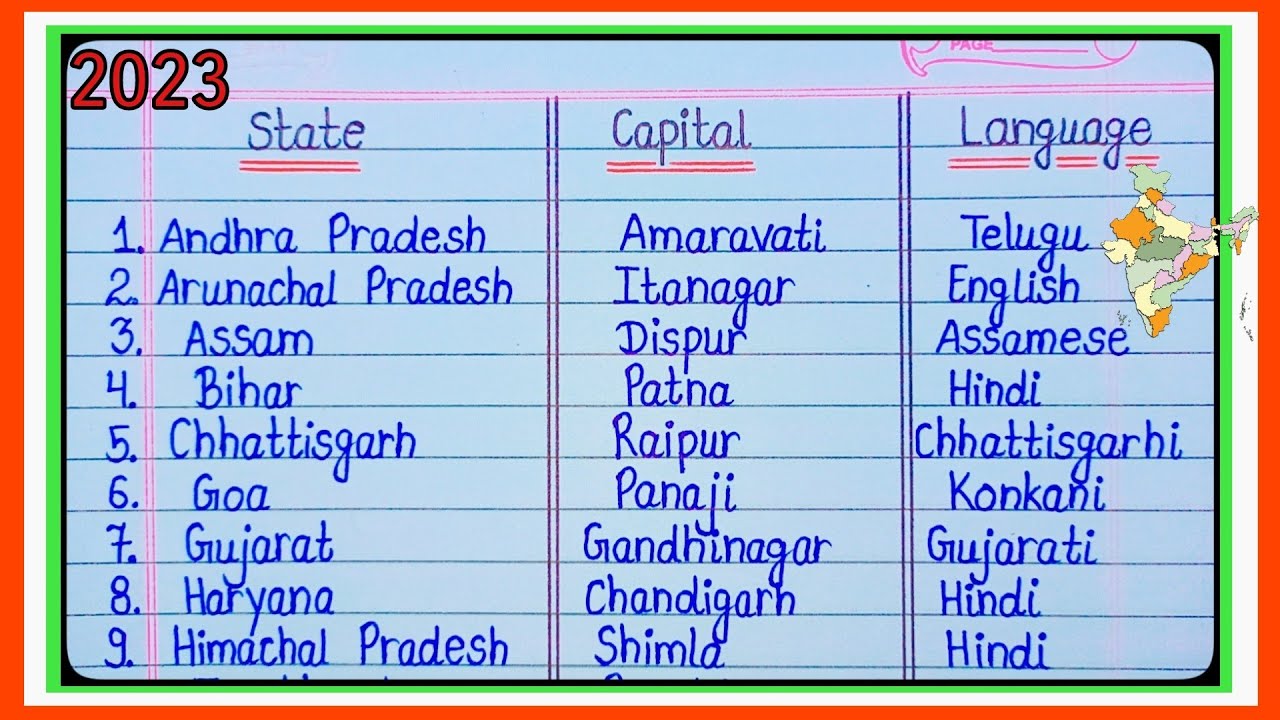 2023
PAGE
State Capital Language
1. Andhra Pradesh Amaravati Telugu
2. Arunachal Pradesh Itanagar English
3. Assam Dispur Assamese
4. Bihar Patna Hindi
5. Chhattisgarh Raipur Chhattisgarhi
6. Goa Panaji Konkani
7. Gujarat Gandhinagar Gujarati
8. Haryana Chandigarh Hindi
9. Himachal Pradesh Shimla Hindi